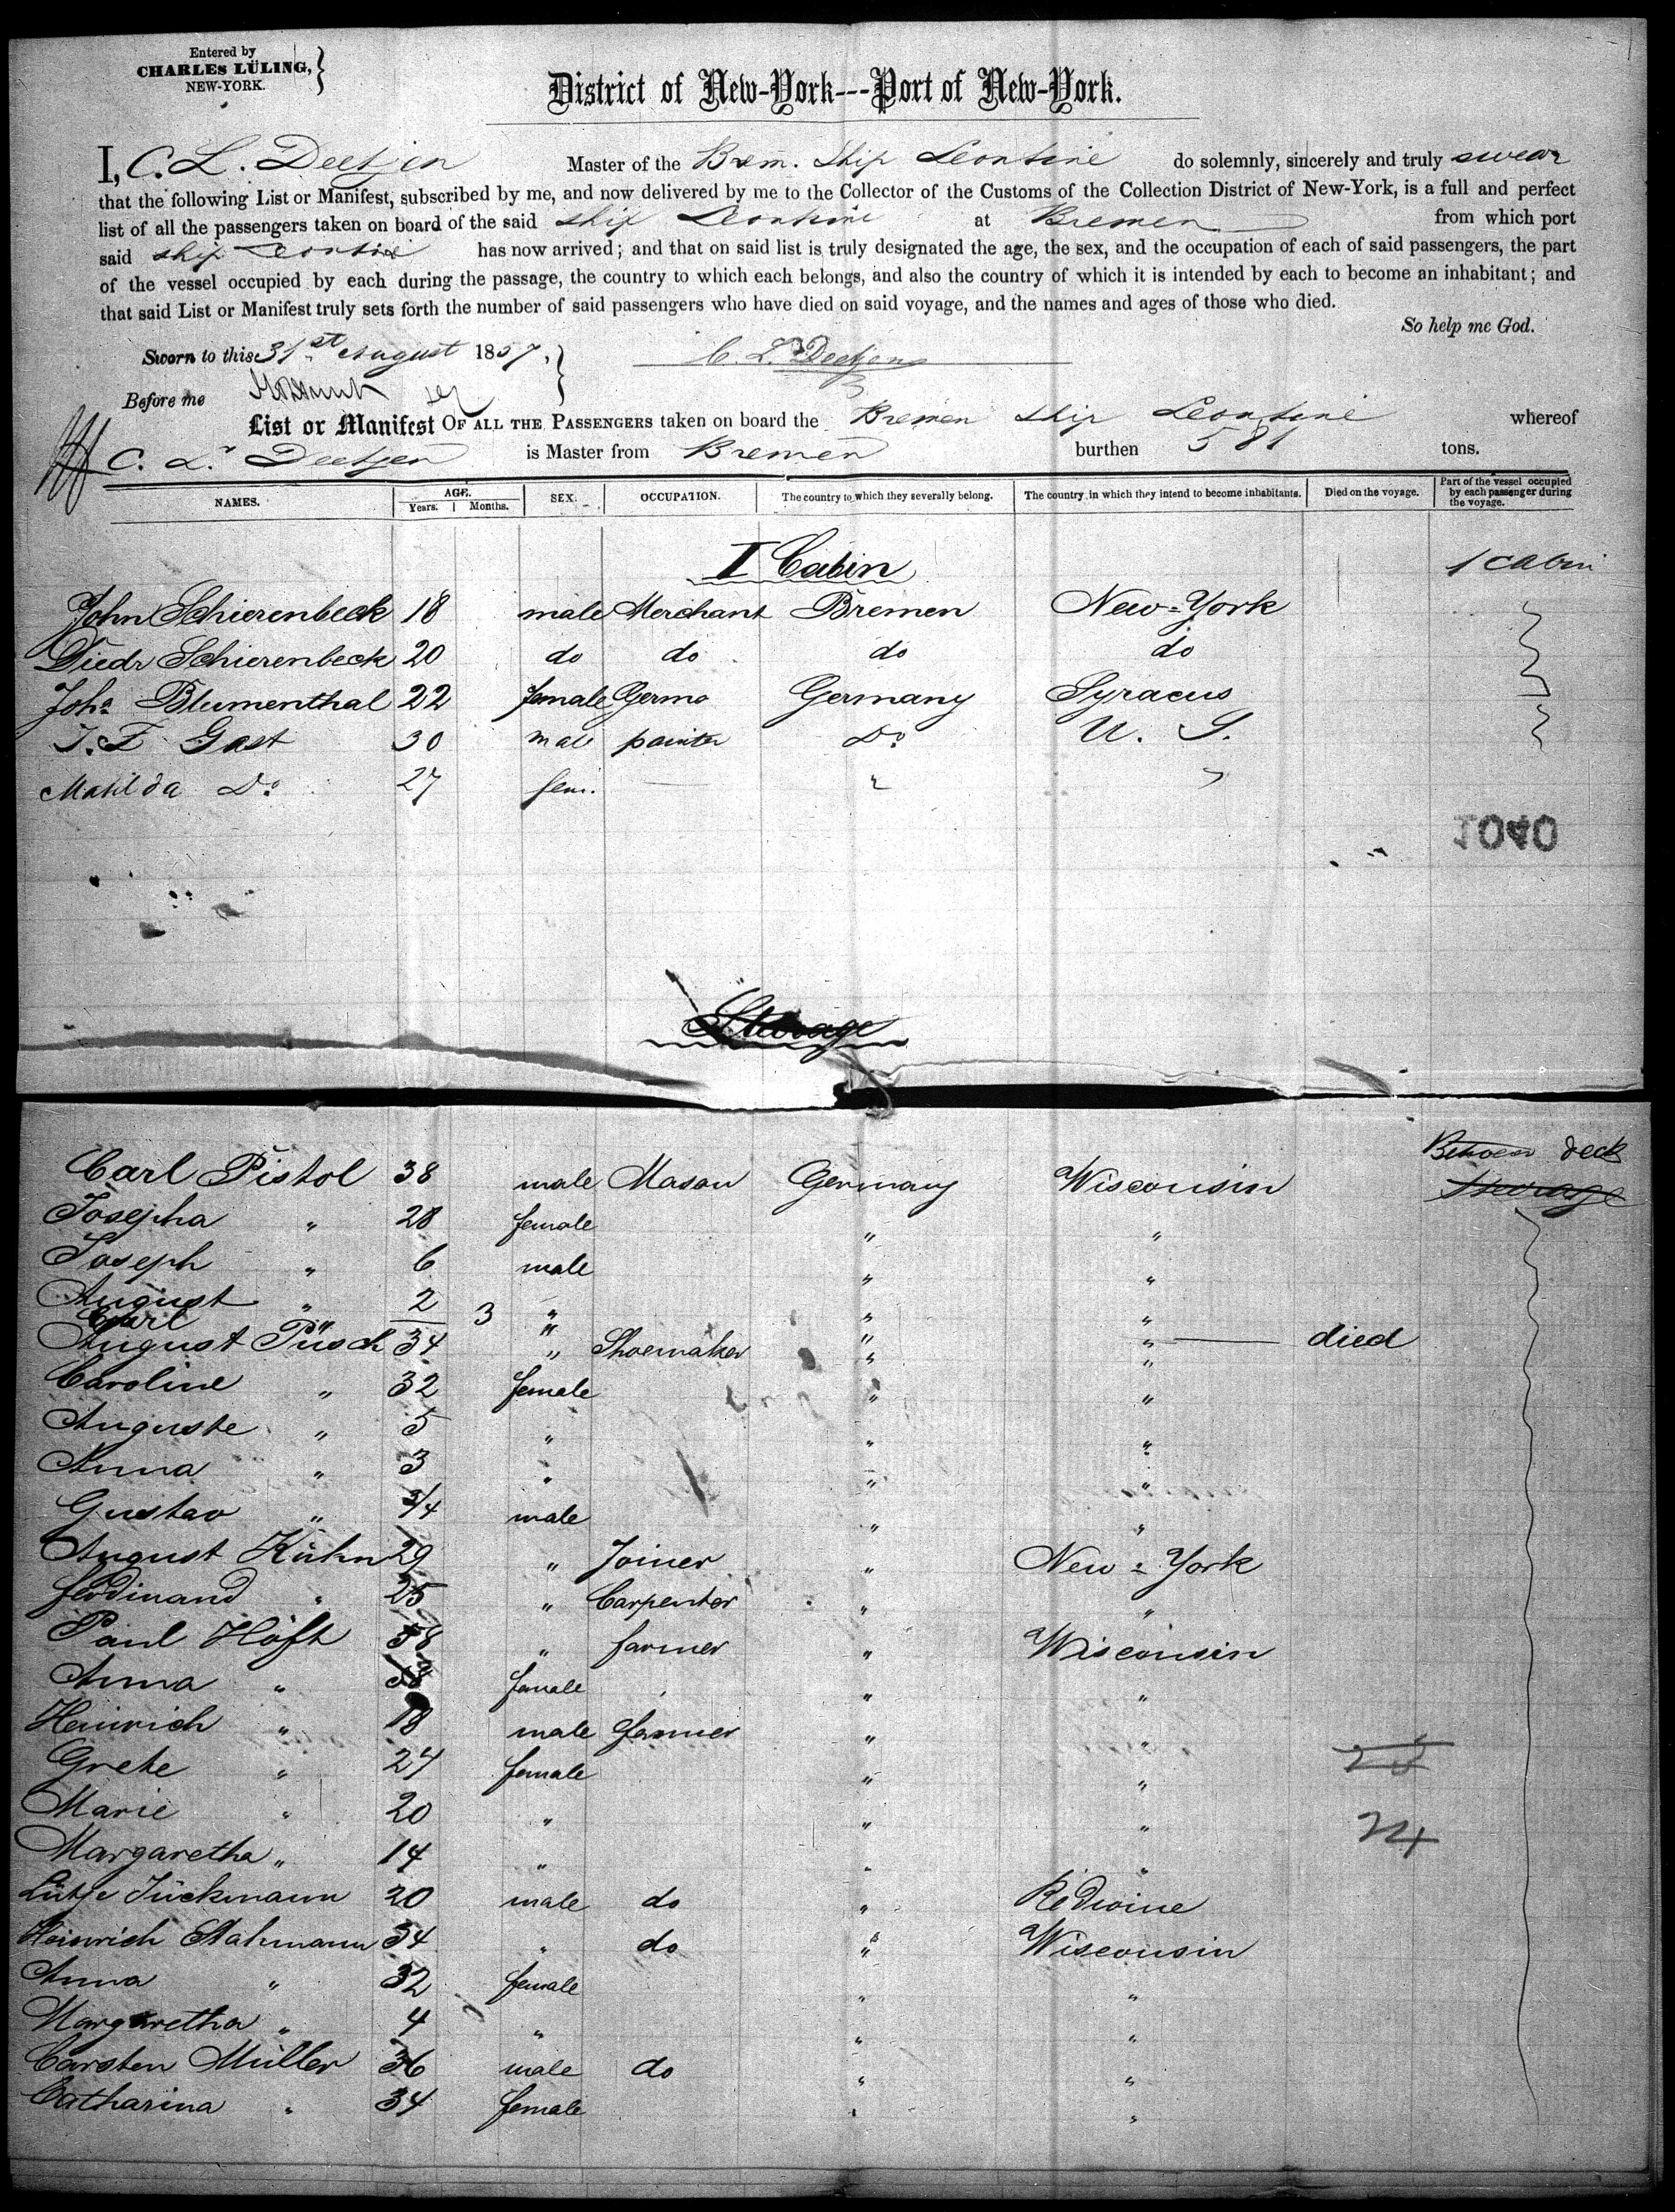 Entered by
CHARLES LÜLING,
NEW-YORK.
District of New-York---Port of New-York.
I, C. L. Deetjen Master of the Brem. Ship Leontine do solemnly, sincerely and truly swear
that the following List or Manifest, subscribed by me, and now delivered by me to the Collector of the Customs of the Collection District of New-York, is a full and perfect
list of all the passengers taken on board of the said ship Leontine at Bremen from which port
said ship Leontine has now arrived; and that on said list is truly designated the age, the sex, and the occupation of each of said passengers, the part
of the vessel occupied by each during the passage, the country to which each belongs, and also the country of which it is intended by each to become an inhabitant; and
that said List or Manifest truly sets forth the number of said passengers who have died on said voyage, and the names and ages of those who died.
So help me God.
Sworn to this 31st August 1857, C. L. Deetjen
Before me
List or Manifest OF ALL THE PASSENGERS taken on board the Bremen ship Leontine whereof
C. L. Deetjen is Master from Bremen burthen 581 tons.
NAMES. AGE. Years. Months. SEX. OCCUPATION. The country to which they severally belong. The country in which they intend to become inhabitants. Died on the voyage. Part of the vessel occupied by each passenger during the voyage.
I Cabin 1 Cabin
John Schierenbeck 18 male Merchant Bremen New-York
Diedr Schierenbeck 20 do do do do
Joha Blumenthal 22 female Germa Germany Syracus
J. F Gast 30 male painter Do U. S.
Matilda Do 27 fem. "
1040
Steerage
Between deck
Carl Pistol 38 male Mason Germany Wisconsin Steerage
Josepha " 28 female " "
Joseph " 6 male " "
August " 2 " " "
Carl " 3 " " " died
August Püsch 34 " Shoemaker " "
Caroline " 32 female " "
Auguste " 5 " " "
Anna " 3 " " "
Gustav " 3/4 male " "
August Kühn 29 " Joiner " New-York
Ferdinand " 25 " Carpenter " "
Paul Höft 58 " farmer " Wisconsin
Anna " 58 female " "
Heinrich " 18 male farmer " "
Grete " 24 female " "
Marie " 20 " " " 24
Margaretha " 14 " " "
Lütje Jückmann 20 male do " Redwine
Heinrich Stahmann 34 " do " Wisconsin
Anna " 32 female " "
Margaretha " 4 " " "
Carsten Müller 36 male do " "
Catharina " 34 female " "